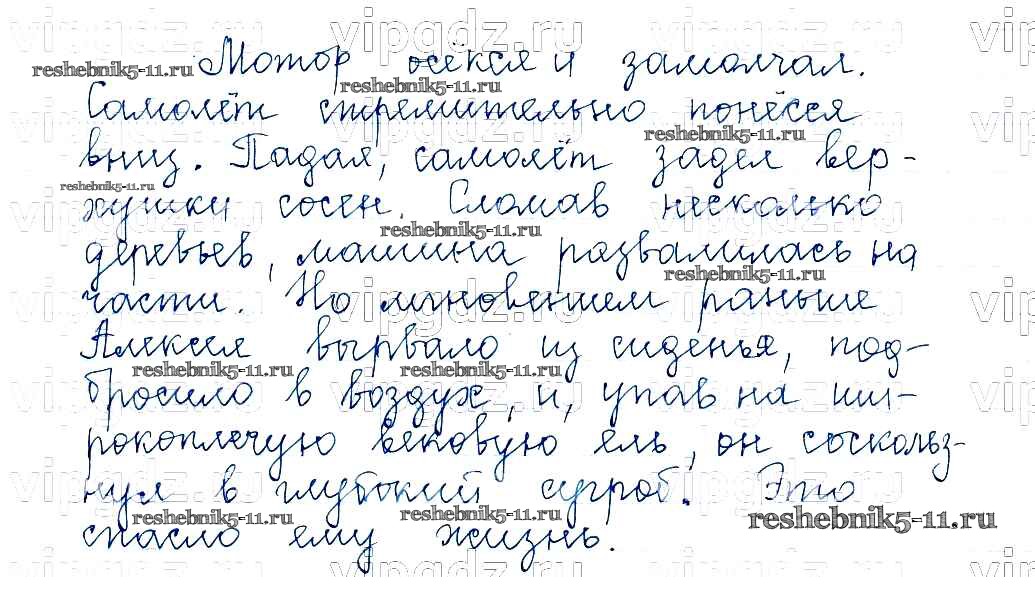 Мотор осёкся и замолчал.
Самолёт стремительно понёсся
вниз. Падая, самолёт задел вер-
хушки сосен. Сломав несколько
деревьев, машина развалилась на
части. Но мгновением раньше
Алексея вырвало из сиденья, под-
бросило в воздух, и, упав на ши-
рокоплечую вековую ель, он соскольз-
нул в глубокий сугроб. Это
спасло ему жизнь.
reshebnik5-11.ru
vipgdz.ru